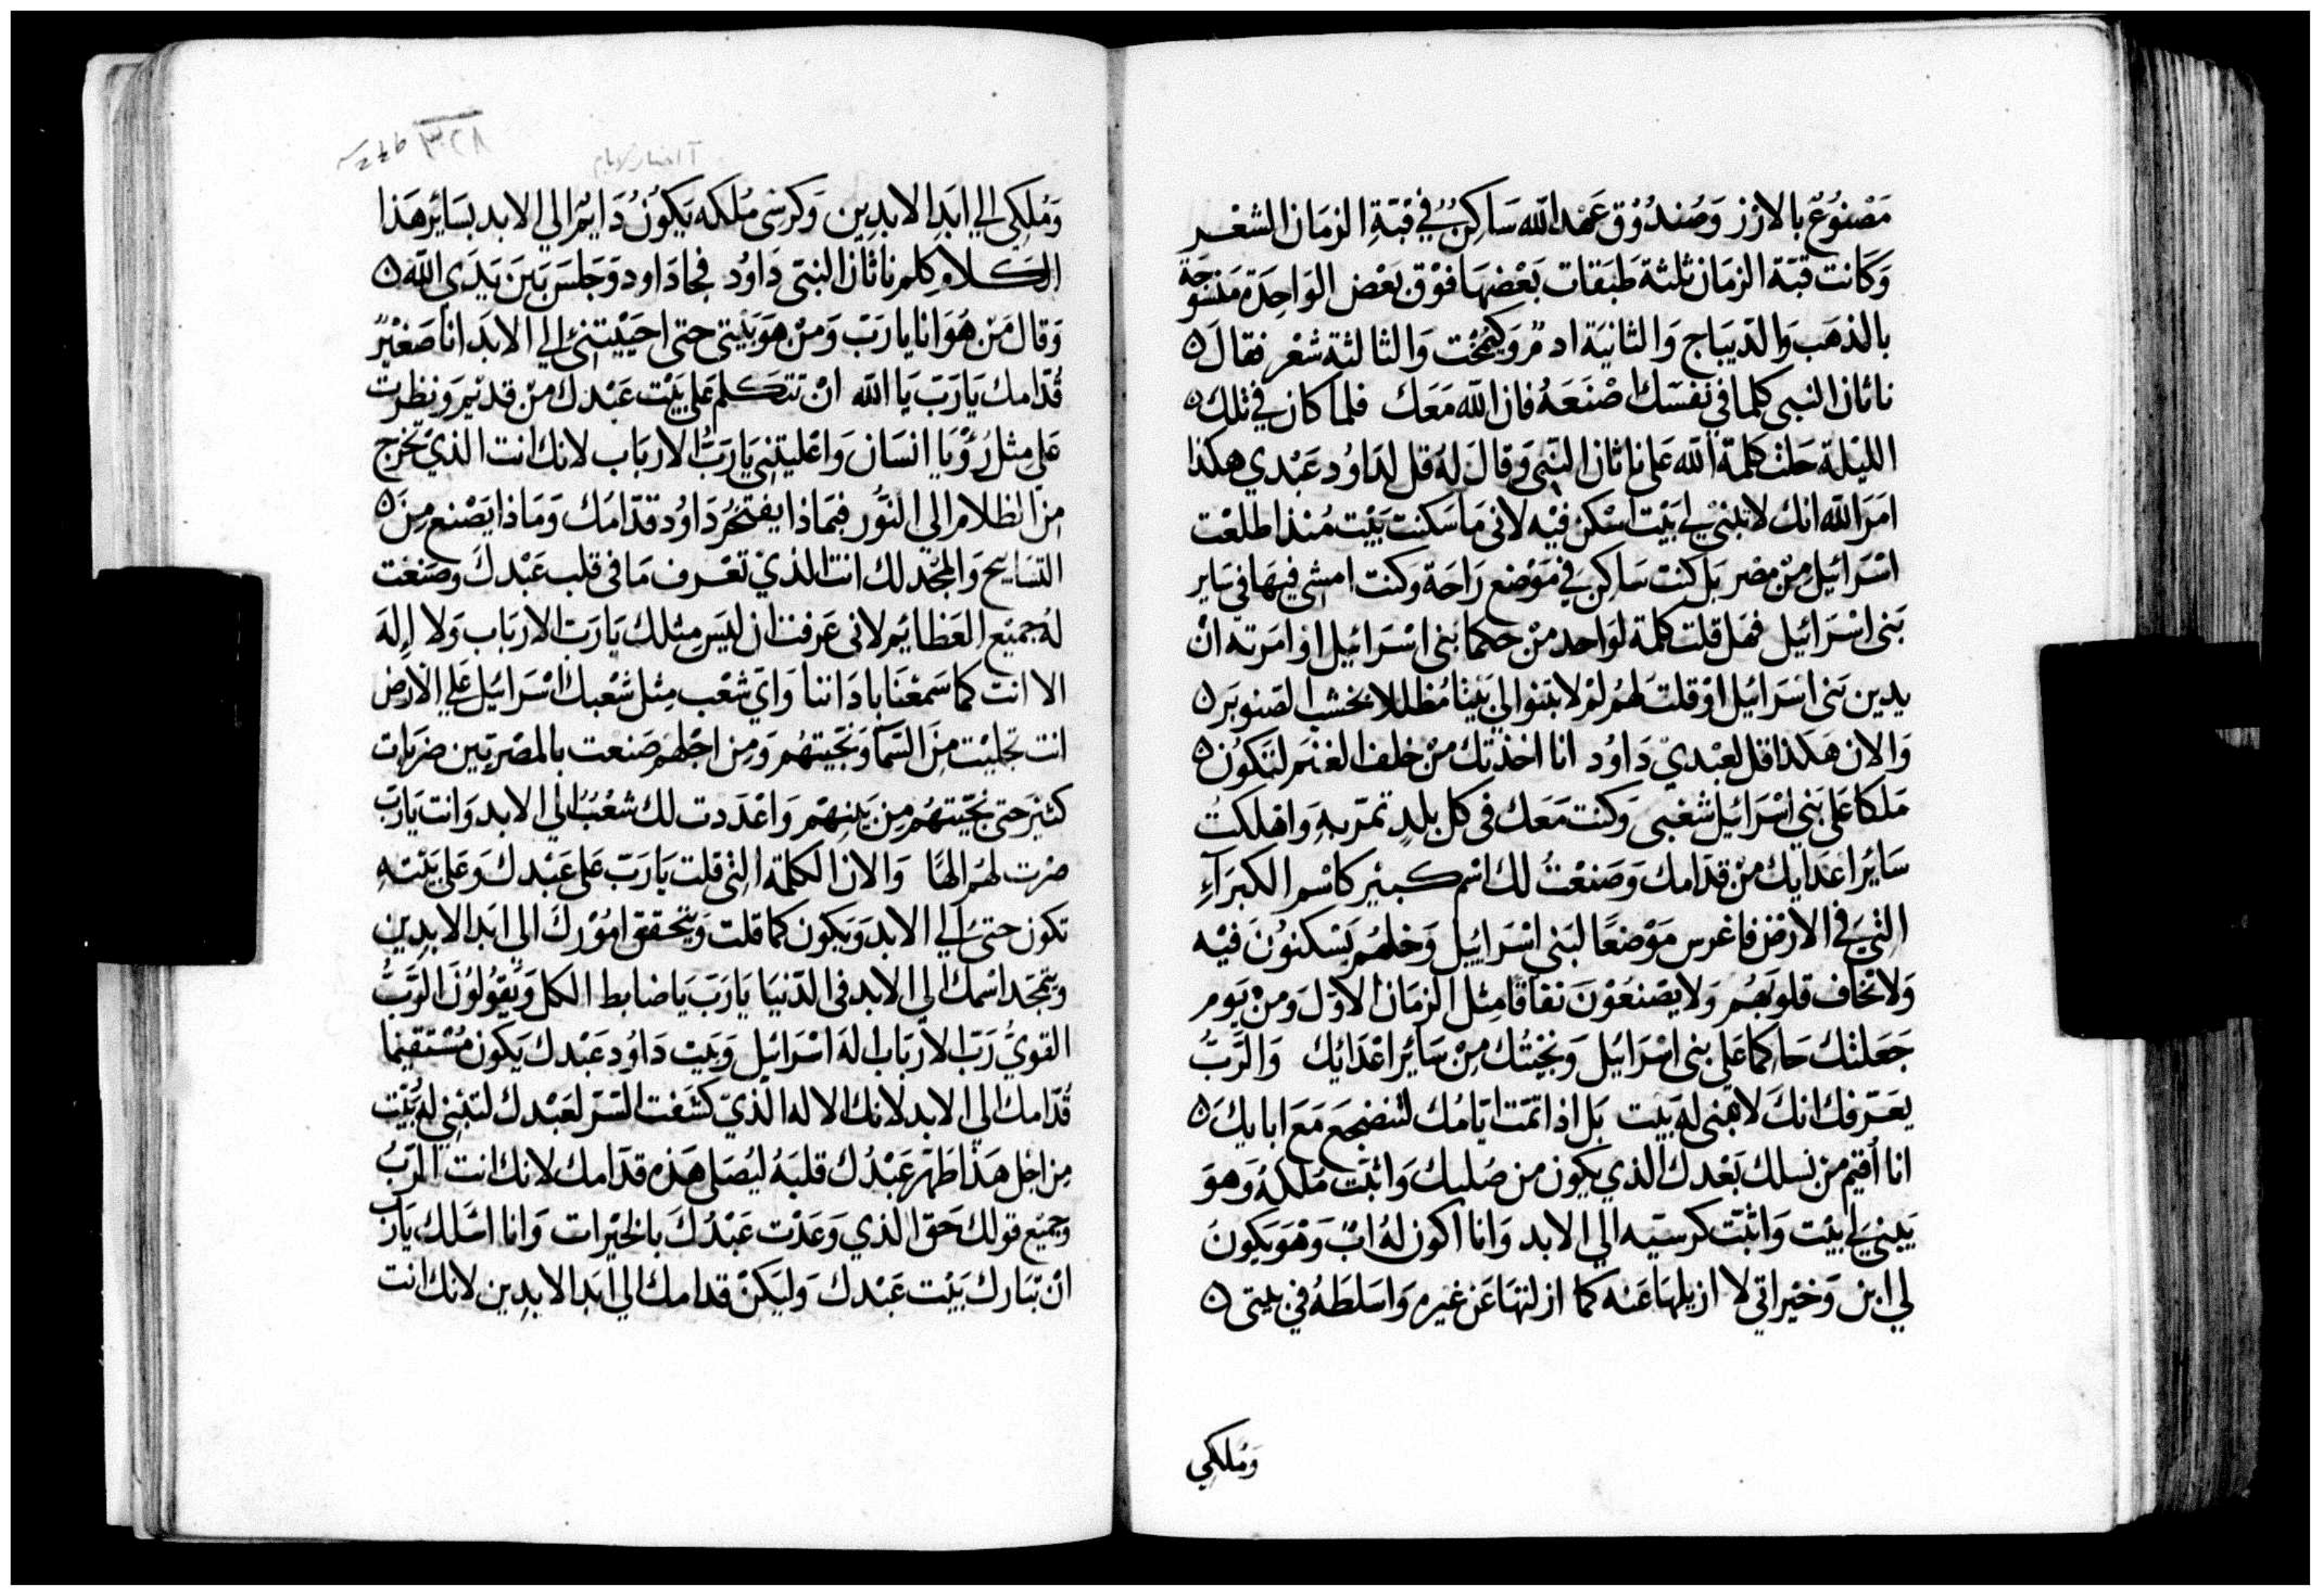 مَصْنُوُعٌ بالارْز وَصُندُوْق عَهْد الله سَاكِنٌ في قبّةِ الزمَان الشعْر
وَكَانت قبّة الزمَان ثلثة طبَقات بَعْضهَا فوْق بَعْض الوَاحِدَة منسُوجَة
بالذهَب وَالدّيبَاج وَالثانيَة ادمٌ وَكيمُخْت وَالثالثة شعْر فقالَ ٥
ناثان النبى كلما في نفسَك اصْنَعَهُ فان الله مَعَك فلما كان في تلك ٥
الليْلة حَلت كلمة الله عَلى ناثان النبى وَقالَ لهُ قل لدَاوُد عَبْدي هكذا
امَرَ الله انك لا تبْنىْ لي بَيْت اسْكن فيْه لانى مَا سَكنت بَيْت مُنذ اطلعْت
اسْرَائيْل مِنْ مِصْر بَل كنت سَاكن في مَوْضع رَاحَة وكنت امشى فيهَا في سَاير
بَنى اسْرَائيل فهَل قلت كلمة لوَاحد منْ حكما بَنى اسْرَائيل اذ امَرته انْ
يدين بَنى اسْرَائيل اوْ قلت لهُم لمْ لا بَنوا لي بَيْتا مُظللا بخشب الصَنوبَر ٥
وَالان هَكذا قل لعَبْدىْ دَاوُد انا اخذتك منْ خلف الغنَم لتكوُن ٥
مَلكا عَلى بَني اسْرَائيل شعْبى وَكنت مَعَك فى كل بلدٍ تمرّ بهِ وَاهْلكتُ
سَائر اعَدَايك منْ قدّامك وَصَنعْتُ لك اسْم كبيْر كاسْم الكبرَآءِ
التىَ في الارْض فاغرس مَوْضعًا لبَني اسْرَائيل وَخلهُم يَسْكنوُنَ فيْه
وَلا تخاف قلوبَهُم وَلا يصْنعَوْنَ نفاقا مِثل الزمَان الاوّل وَمنْ يَوم
جَعَلتْك حَاكما عَلى بنى اسْرَائيل وَنجيْتُك مِنْ سَائر اعْدَائِك وَالرَّبُّ
يعَرّفك انكَ لا تبْنى له بَيْت بَل اذا تمّت ايَّامُك لتنضجعَ مَعَ ابايكَ ٥
انا اُقيْم منْ نسلك بَعْدك الذي يكون من صُلبك وَاثبّت مُلكهُ وَهوَ
يَبْنيْ لي بيْت وَاثبّت كرسيّه الي الابد وَانا اكون لهُ ابٌ وَهْوَ يَكونَ
لي ابن وَخيْراتي لا ازيلهَا عَنه كما ازلتهَا عَن غيْره وَاسَلطهُ في بيتى ٥
وَمُلكِي
٣٢٨
آ اخبار الايام
وَمُلكِى الي ابَد الابدِين وَكرسى مُلكه يَكوُنُ دَايمٌ الي الابد بسَائر هَذا
الكلامِ كلم ناثان النبىّ دَاوُد فجا دَاود وَجَلسَ بَين يَدَي الله ٥
وَقالَ مَن هُوَ انا يا رَبّ وَمنْ هوَ بَيْتى حتى احيَيْتني الي الابَد انا صَغيْرٌ
قُدّامك يَا رَبّ يَا الله انْ تتكلم عَلى بَيْت عَبْدك منْ قديْم وَنظرت
عَلى مثل رُؤْيا انسَان وَاعْليتني يَا رَبُّ الارْبَاب لانك انت الذيْ تخرج
منَ الظلام الي النوُّر فبمَاذا يفتخرُ دَاوُد قدّامُك وَمَاذا يَصْنع مِنَ ٥
التسَابيح وَالمَجْد لك انت الذيْ تعْرف مَا فى قلب عَبْدكَ وَصَنعْت
لهُ جميْع العَظائم لانى عَرفت ان ليَس مِثلك يَا رَبّ الارْبَاب وَلا اِلهَ
الا انت كما سَمعْنا باذاننا وَاىّ شعْب مِثل شعْبك اسْرَائيْل عَلي الارْض
انت تجليْت مِنَ السّمآ وَنجّيتهُم وَمِن اجْلهم صَنعت بالمصْريّين ضرَبات
كثيْر حتى نجّيتهُم مِن بَينهْم وَاعْدَدت لك شعْبٌ الي الابد وَانت يَا رَبّ
صْرت لهُم الهًا وَالان الكلمة التى قلت يَا رَبّ عَلى عَبْدك وَعَلى بَيْته
تكون حتىَ الي الابد وَيكون كما قلت وَيتحقق امُوْرك الي ابَد الابدِين
وَيتمجّد اسْمك الي الابد فى الدّنيَا يَا رَبّ يَا ضابط الكل وَيَقوُلوُن الرَّبُّ
القوىُّ رَبّ الارْبَاب اله اسْرَائيل وَبَيت دَاوُد عَبْدك يَكون مُسْتقيْما
قُدّامك الي الابد لانك الاله الذّيْ كشفت السّر لعَبْدك لتبْني له بَيْت
مِن اجْل هَذا طهّر عَبْدُك قلبَهُ ليُصَلى هَذه قدّامك لانك انت الرَبُّ
وَجميْع قولك حَقّ الذي وَعَدْت عَبْدُكَ بالخيْرات وَانا اسْلك يَا رَبّ
انْ تبَارك بَيْت عَبْدك وَليَكنْ قدامك الي ابَد الابدِين لانك انت